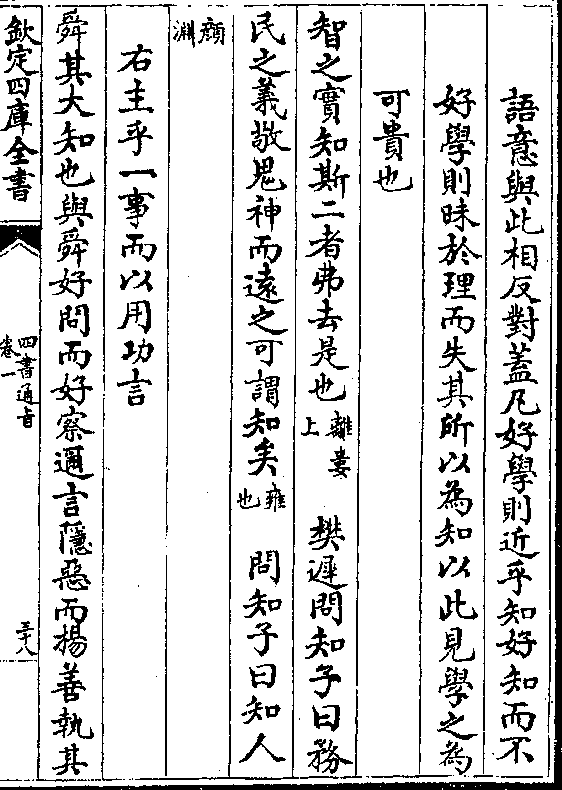 語意與此相反對蓋凡好學則近乎知好知而不
好學則昧於理而失其所以為知以此見學之為
可貴也
智之實知斯二者弗去是也離婁上 樊遲問知子曰務
民之義敬鬼神而遠之可謂知矣雍也 問知子曰知人
顏淵
右主乎一事而以用功言
舜其大知也與舜好問而好察邇言隱惡而揚善執其
欽定四庫全書
四書通旨
卷一
三十八